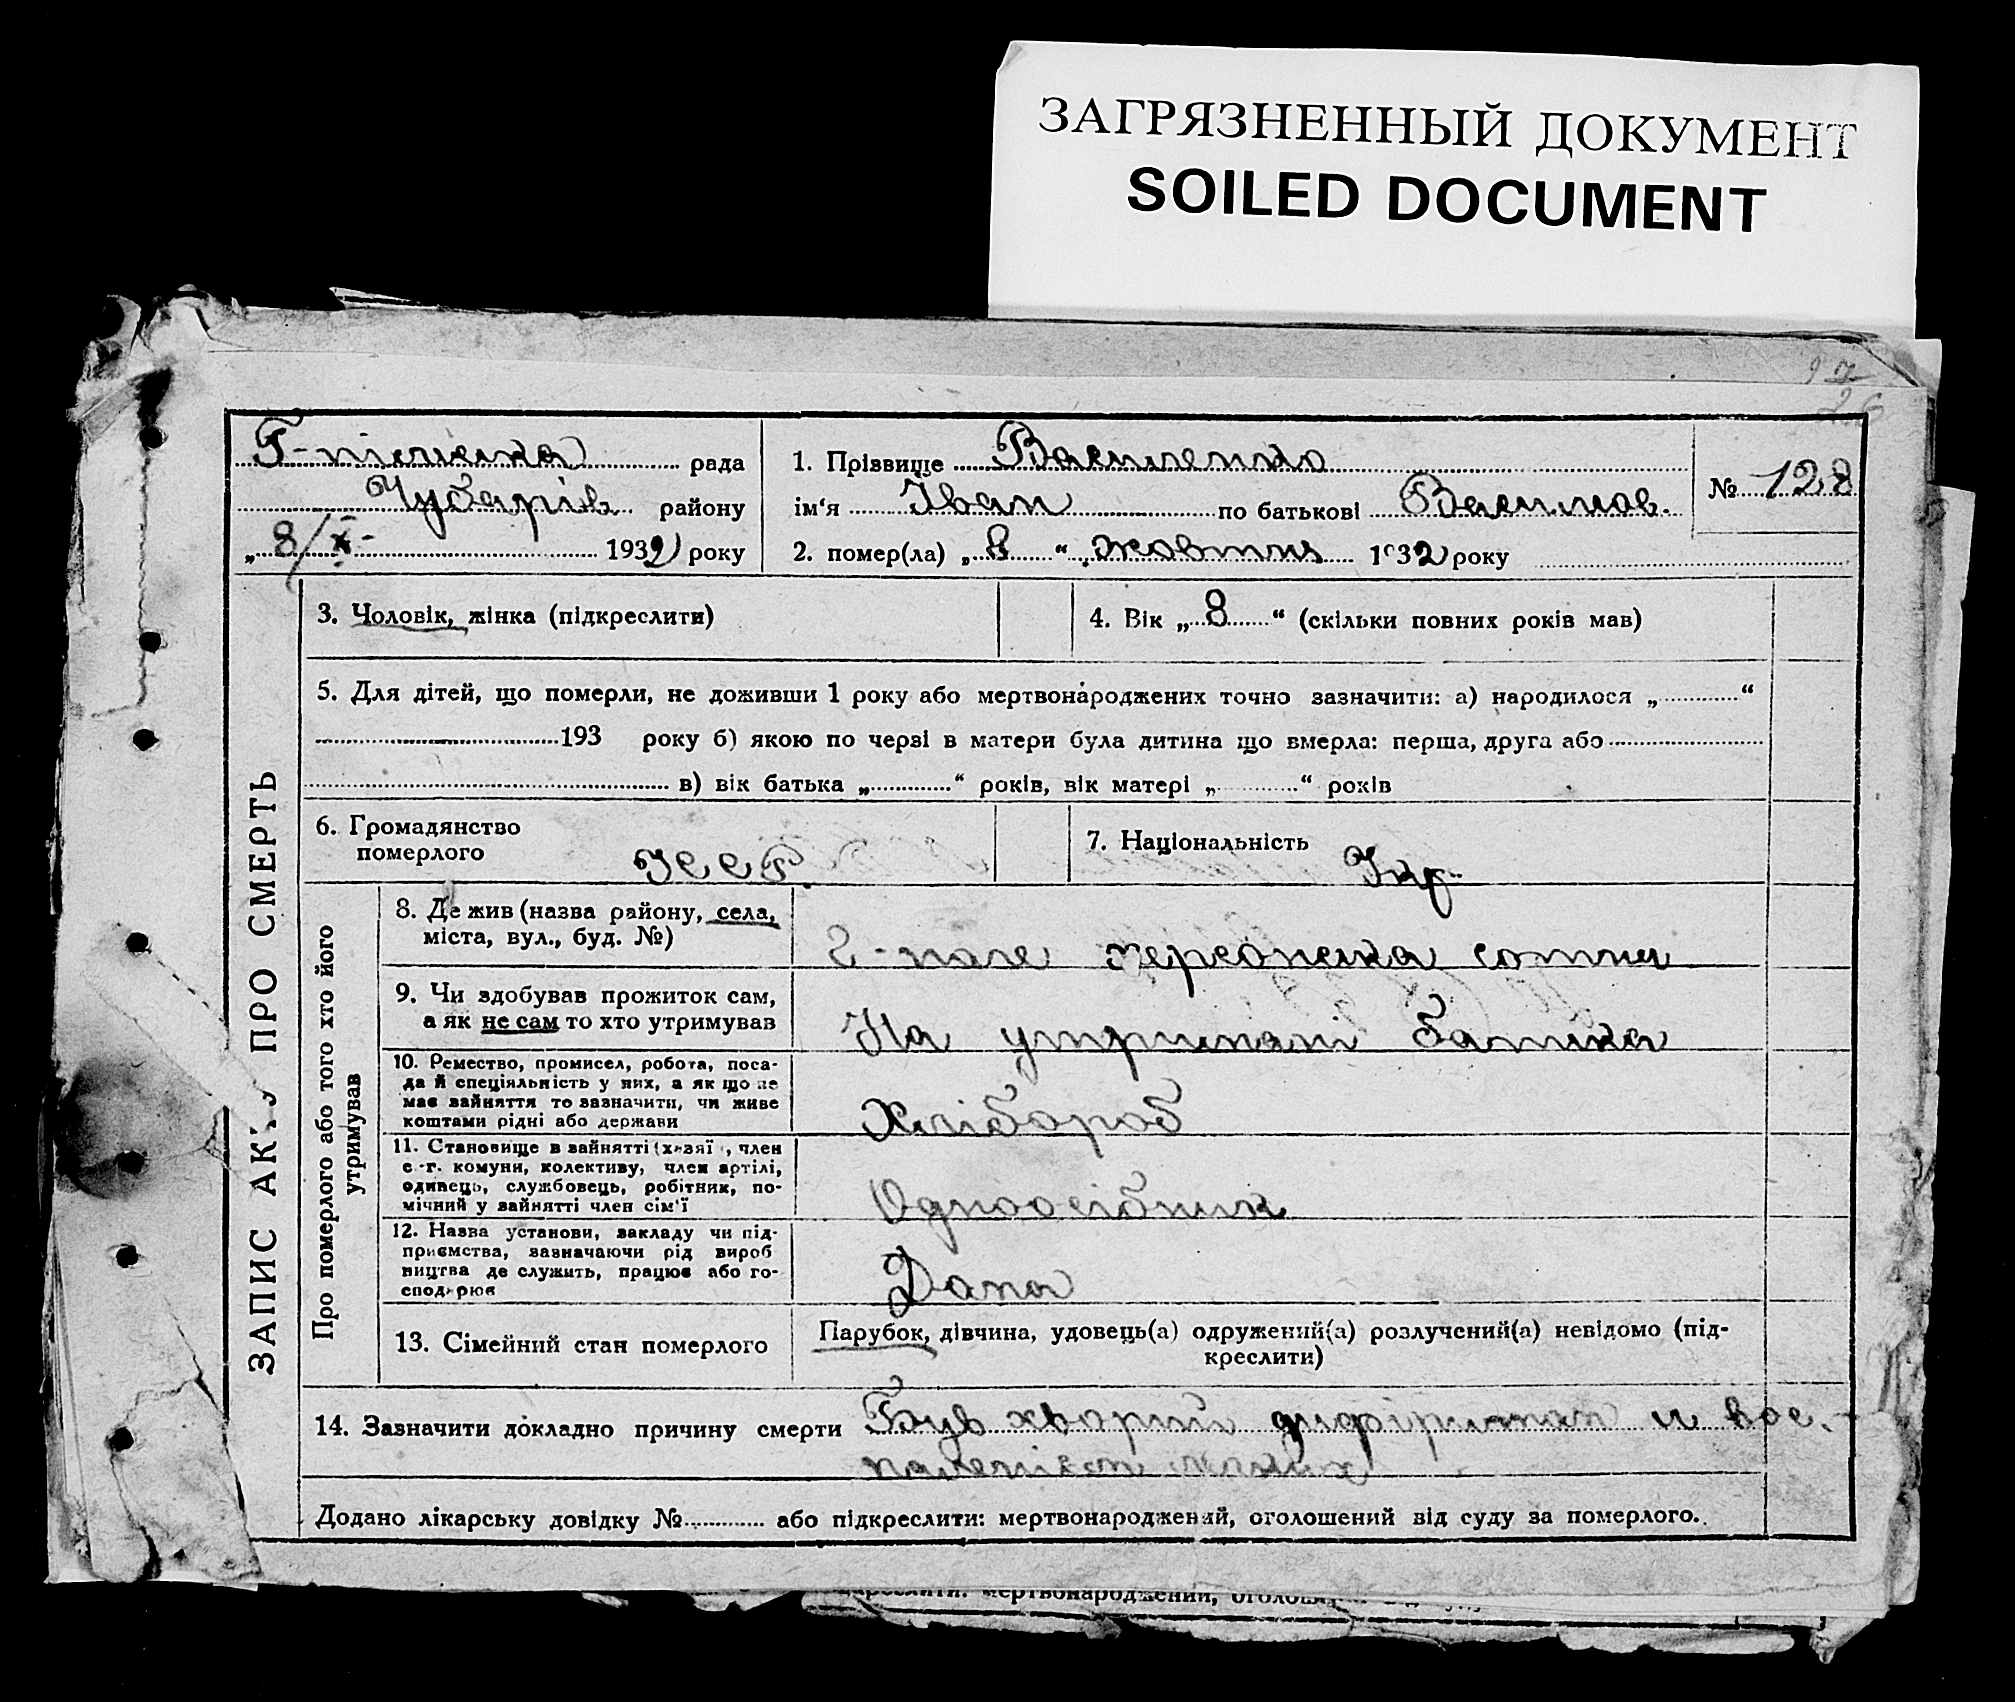 ЗАГРЯЗНЕННЫЙ ДОКУМЕНТ
SOILED DOCUMENT
Г-пільська рада
Чубарів району
„ 8/X - 1932 року
1. Прізвище Василенко
ім‘я Іван по батькові Васильов.
2. помер(ла) „ 8 “ жовтня 1932 року
№ 128
ЗАПИС АКТУ ПРО СМЕРТЬ
3. Чоловік, жінка (підкреслити)
4. Вік „ 8 “ (скільки повних років мав)
5. Для дітей, що померли, не доживши 1 року або мертвонароджених точно зазначити: а) народилося „ “
193 року б) якою по черзі в матери була дитина що вмерла: перша, друга або
в) вік батька „ “ років, вік матері „ “ років
6. Громадянство
померлого УССР.
7. Національність Укр.
Про померлого або того хто його
утримував
8. Де жив (назва району, села,
міста, вул., буд. №)
Г-поле херсонська сотня
9. Чи здобував прожиток сам,
а як не сам то хто утримував
На утриманні батька
10. Ремество, промисел, робота, поса-
да й спеціяльність у них, а як що не
має зайняття то зазначити, чи живе
коштами рідні або держави
Хлібороб
11. Становище в зайнятті (хазяї , член
с.-г. комуни, колективу, член артілі,
одинець, службовець, робітник, по-
мічний у зайнятті член сім'ї
Одноосібник
12. Назва установи, закладу чи під-
приємства, зазначаючи рід вироб
ництва де служить, працює або го-
сподарює
Дома
13. Сімейний стан померлого
Парубок, дівчина, удовець(а) одружений(а) розлучений(а) невідомо (під-
креслити)
14. Зазначити докладно причину смерти Був хворий дифіритом и вос.-
палением
Додано лікарську довідку № або підкреслити: мертвонароджений, оголошений від суду за померлого.
мертвонароджений,